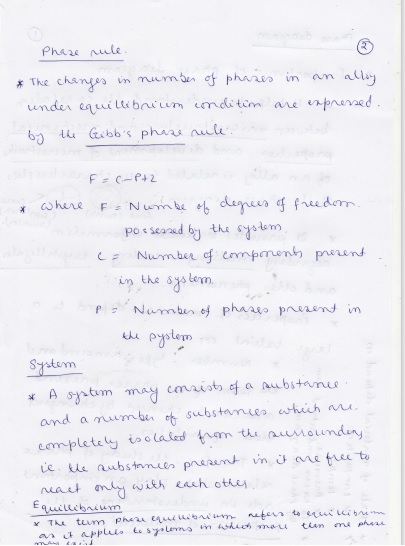 Phase rule.
2
* The changes in number of phases in an alloy
under equillibrium condition are expressed.
by the Gibb's phase rule.
F = C-P+2
* where F = Numbe of degrees of freedom.
possessed by the system.
C = Number of components present.
in the system
P = Number of phases present in
the system
System
* A system may consists of a substance.
and a number of substances which are.
completely isolated from the surroundeng
i.e. the substances present in it are free to
react only with each other.
Equillibrium
* The term phase equillibrium refers to equillibrium
as it applies to systems in which more then one phase
may exist